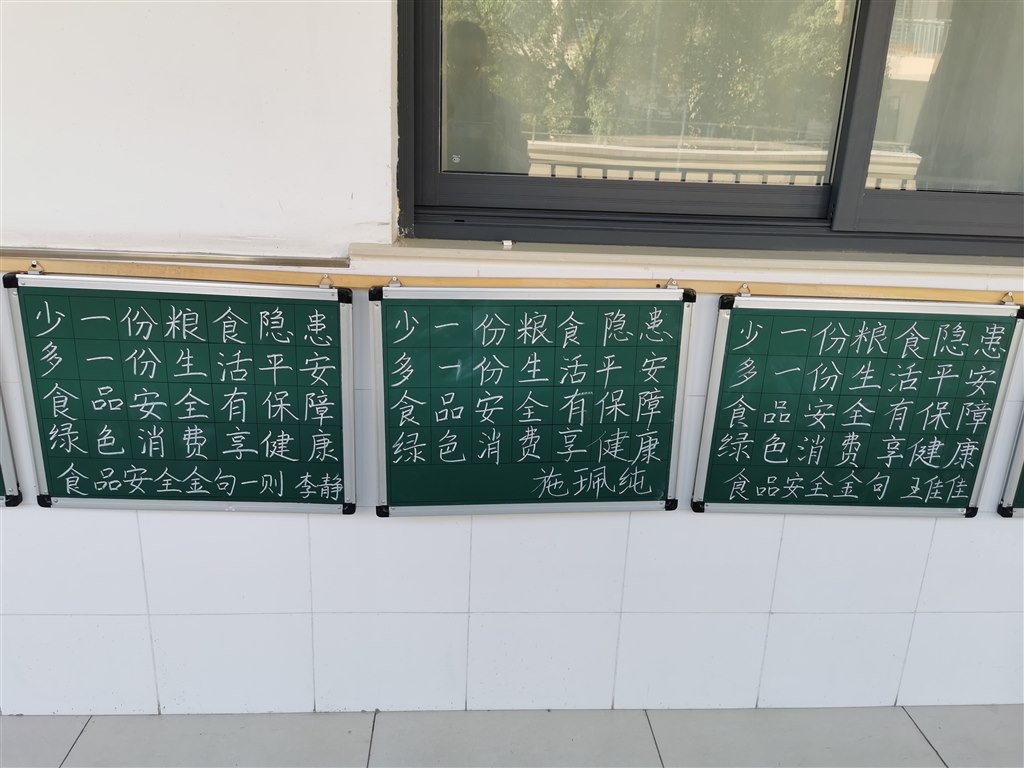 少一份粮食隐患
多一份生活平安
食品安全有保障
绿色消费享健康
食品安全金句一则 李静
少一份粮食隐患
多一份生活平安
食品安全有保障
绿色消费享健康
施珮纯
少一份粮食隐患
多一份生活平安
食品安全有保障
绿色消费享健康
食品安全金句 王佳佳